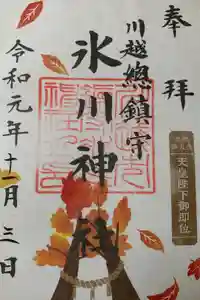 奉拝
川越總鎮守
氷川神社
天皇陛下御即位
令和元年十一月三日